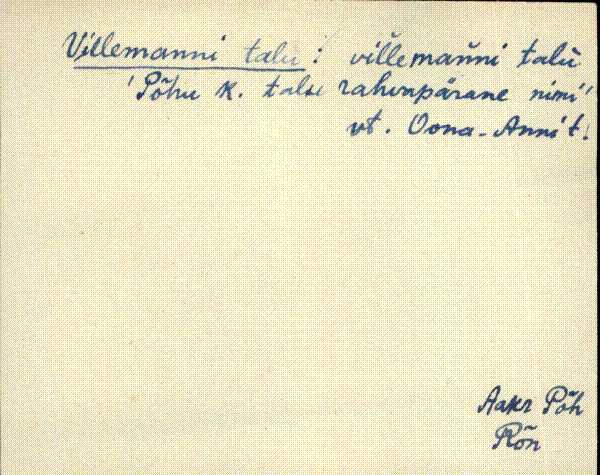 Villemanni talu : villemanni talu
'Põhu k. talu rahvapärane nimi'
vt. Oona-Anni t.
Aakr Põh
Rõn